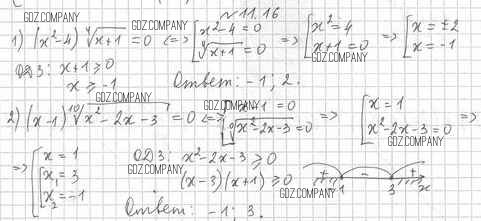 GDZ.COMPANY
№ 11.16
1) (x²-4) ⁴√(x+1) = 0 <=> [x²-4=0; ⁴√(x+1) = 0 => [x²=4; x+1=0 => [x=±2; x=-1
GDZ.COMPANY GDZ.COMPANY GDZ.COMPANY
ОДЗ: x+1≥0
x ≥ -1 Ответ: -1; 2.
GDZ.COMPANY GDZ.COMPANY
2) (x-1) ¹⁰√(x²-2x-3) = 0 <=> [x-1=0; ¹⁰√(x²-2x-3) = 0 => [x=1; x²-2x-3=0 =>
GDZ.COMPANY
=> [x=1; x₁=3; x₂=-1 ОДЗ: x²-2x-3≥0
GDZ.COMPANY (x-3)(x+1)≥0 + -1 - 3 + x
GDZ.COMPANY
Ответ: -1; 3.